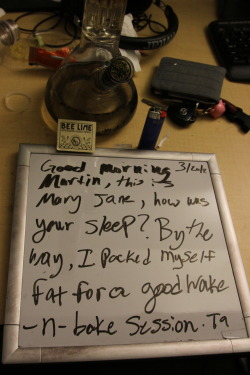 BEE LINE
Good morning 3/20/12
Martin, this is
Mary Jane, how was
your sleep? By the
way, I Packed myself
fat for a good wake
-n-bake Session. Ta